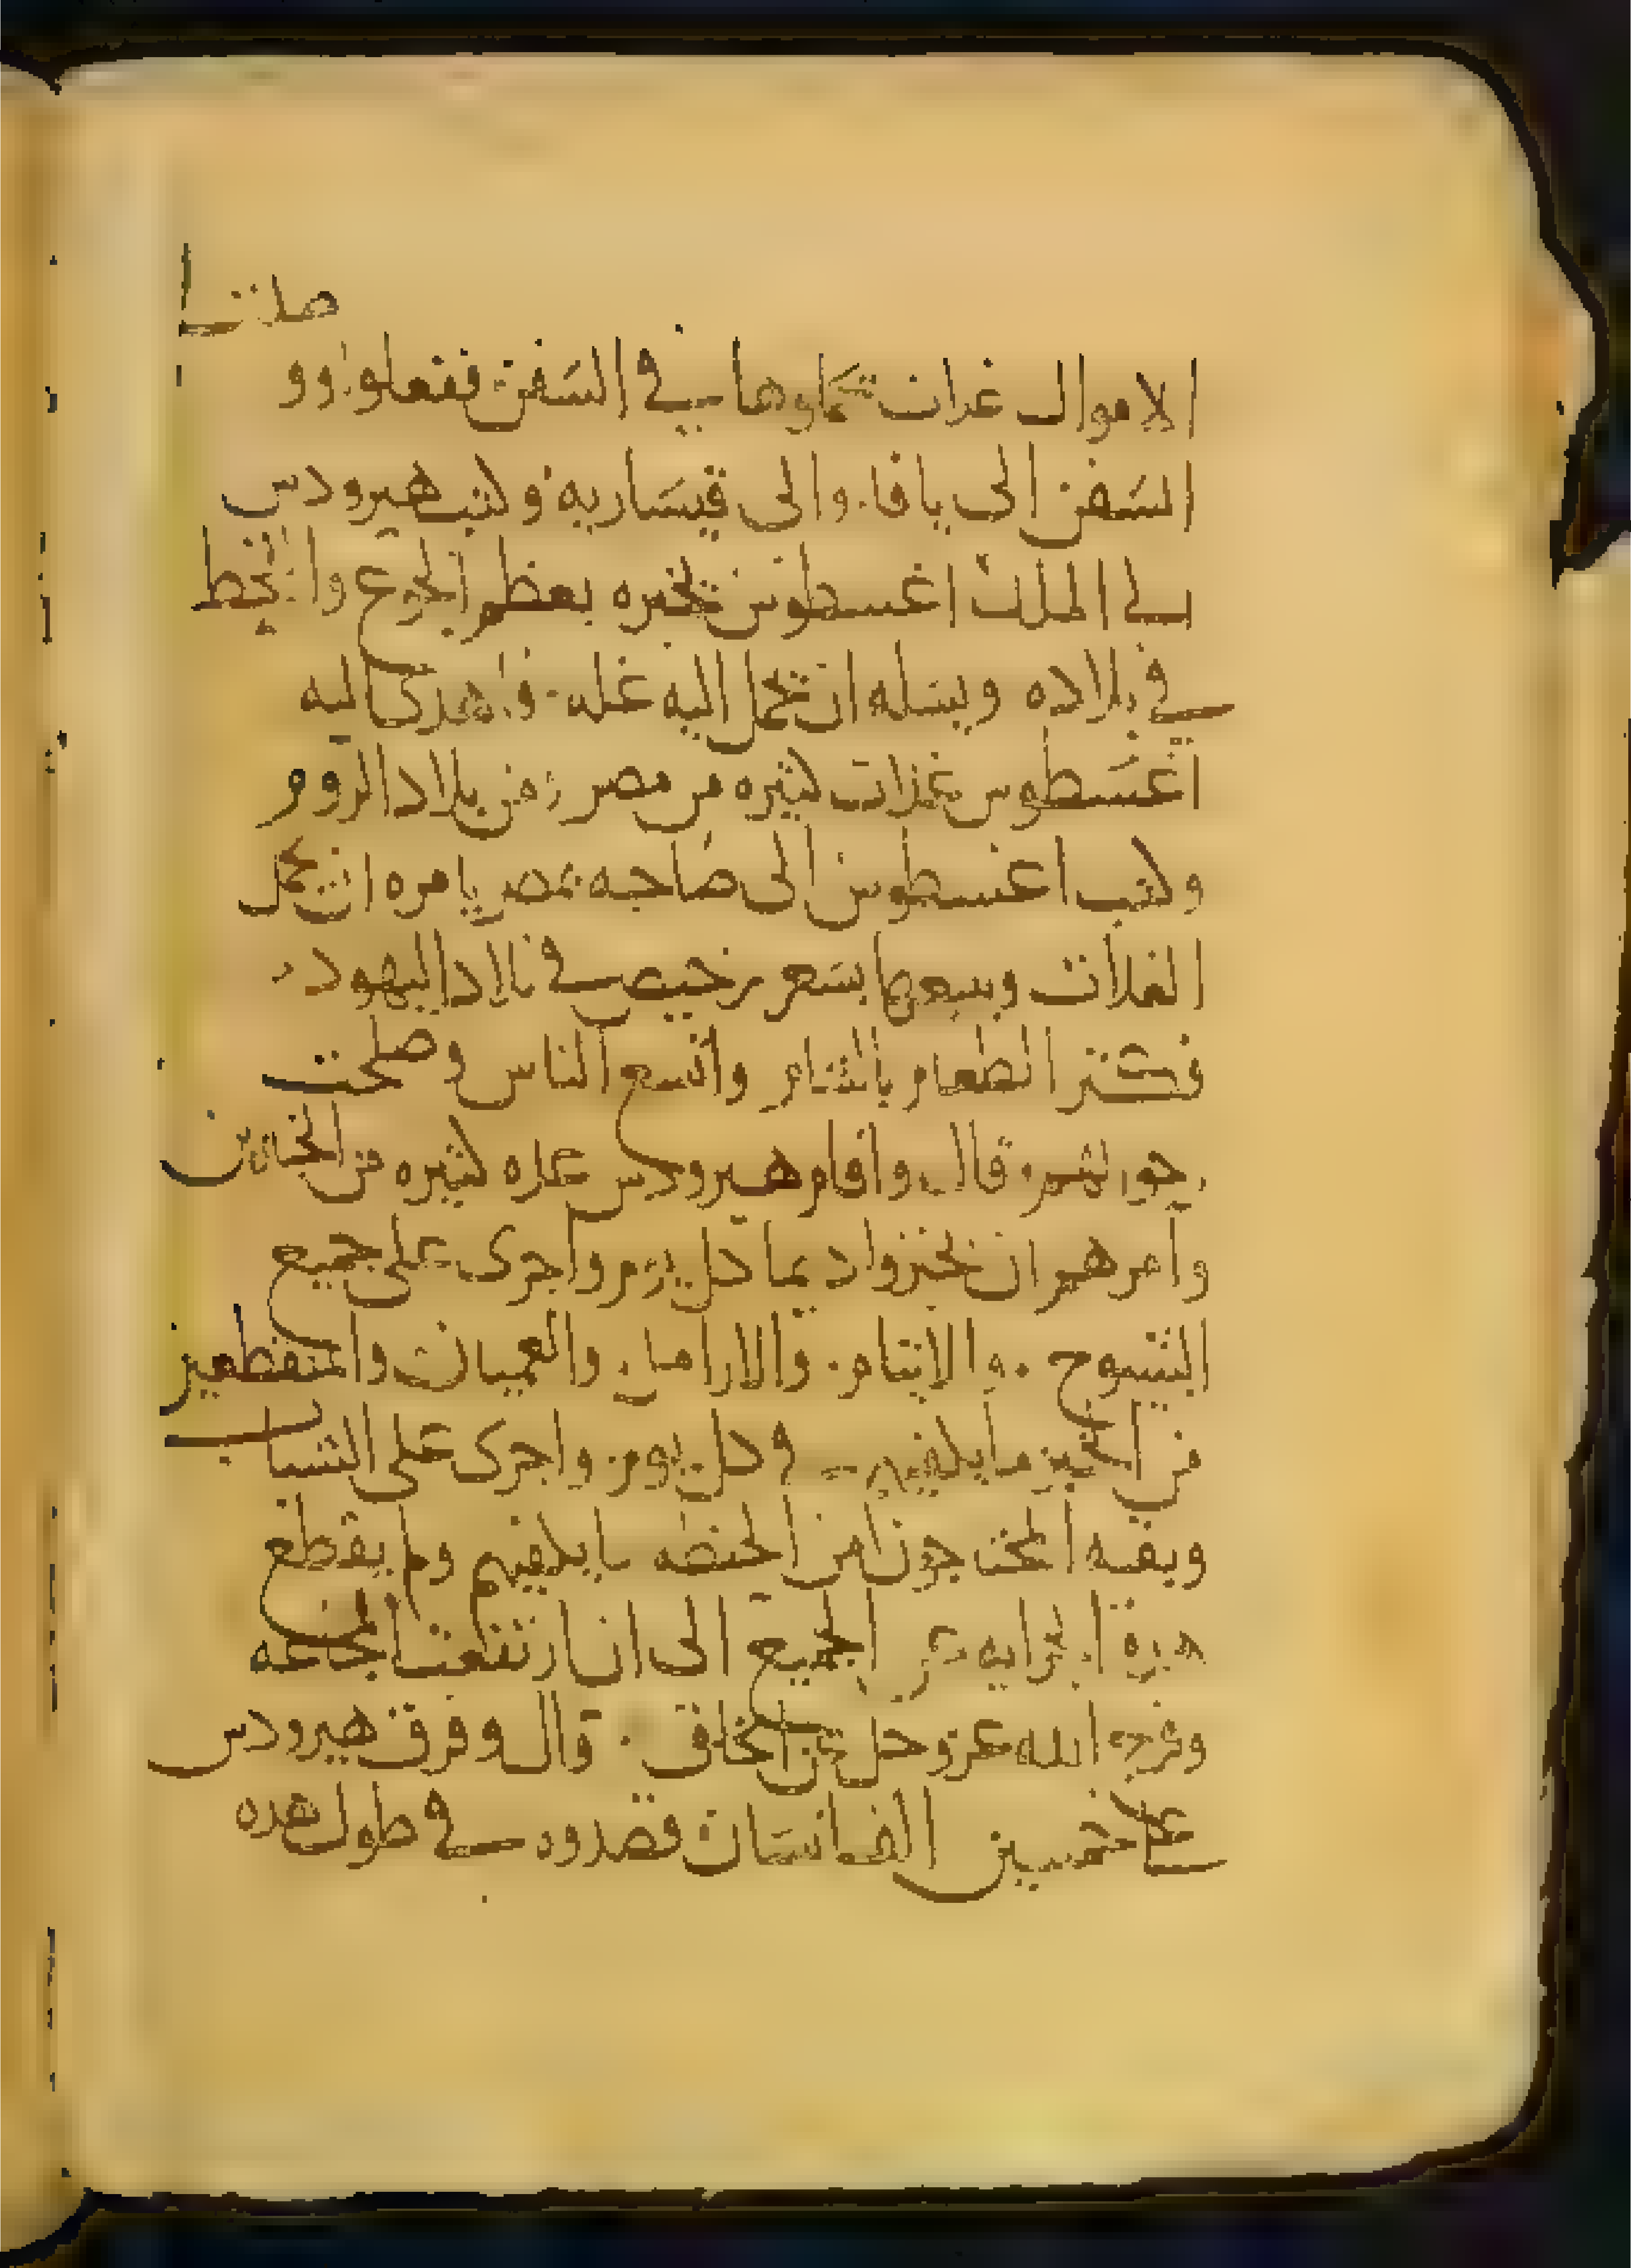 صلت
الاموال غلات تحملوها في السفن ففعلوا وو
السفن الى يافا والى قيساريه وكتب هيرودس
الى الملك اغسطوس يخبره بعظم الجوع والقحط
في بلاده ويسله ان يحمل اليه غله واهدى اليه
اغسطوس بغلات كثيره من مصر ومن بلاد الروم
وكتب اغسطوس الى صاحبه بمصر يامره ان يحمل
الغلات ويبيعها بسعر رخيص في بلاد اليهود
فكثر الطعام بالشام واتسع الناس وصلحت
قال واقام هيرودس عده كثيره من الخبازين
وامرهم ان يخبزوا دىما كل يوم واجرى على جميع
الشيوخ والايتام والارامل والعميان والمنقطعين
من الخبز ما يكفيهم في كل يوم واجرى على الشباب
وبقيه المحتاجون من الحنطه ما يكفيهم ولم يقطع
هذه الجرايه عن الجميع الى ان ارتفعت المجاعه
وفرج الله عز وجل عن الخلق قال وفرق هيرودس
على خمسين الف انسان قصدوه في طول هذه